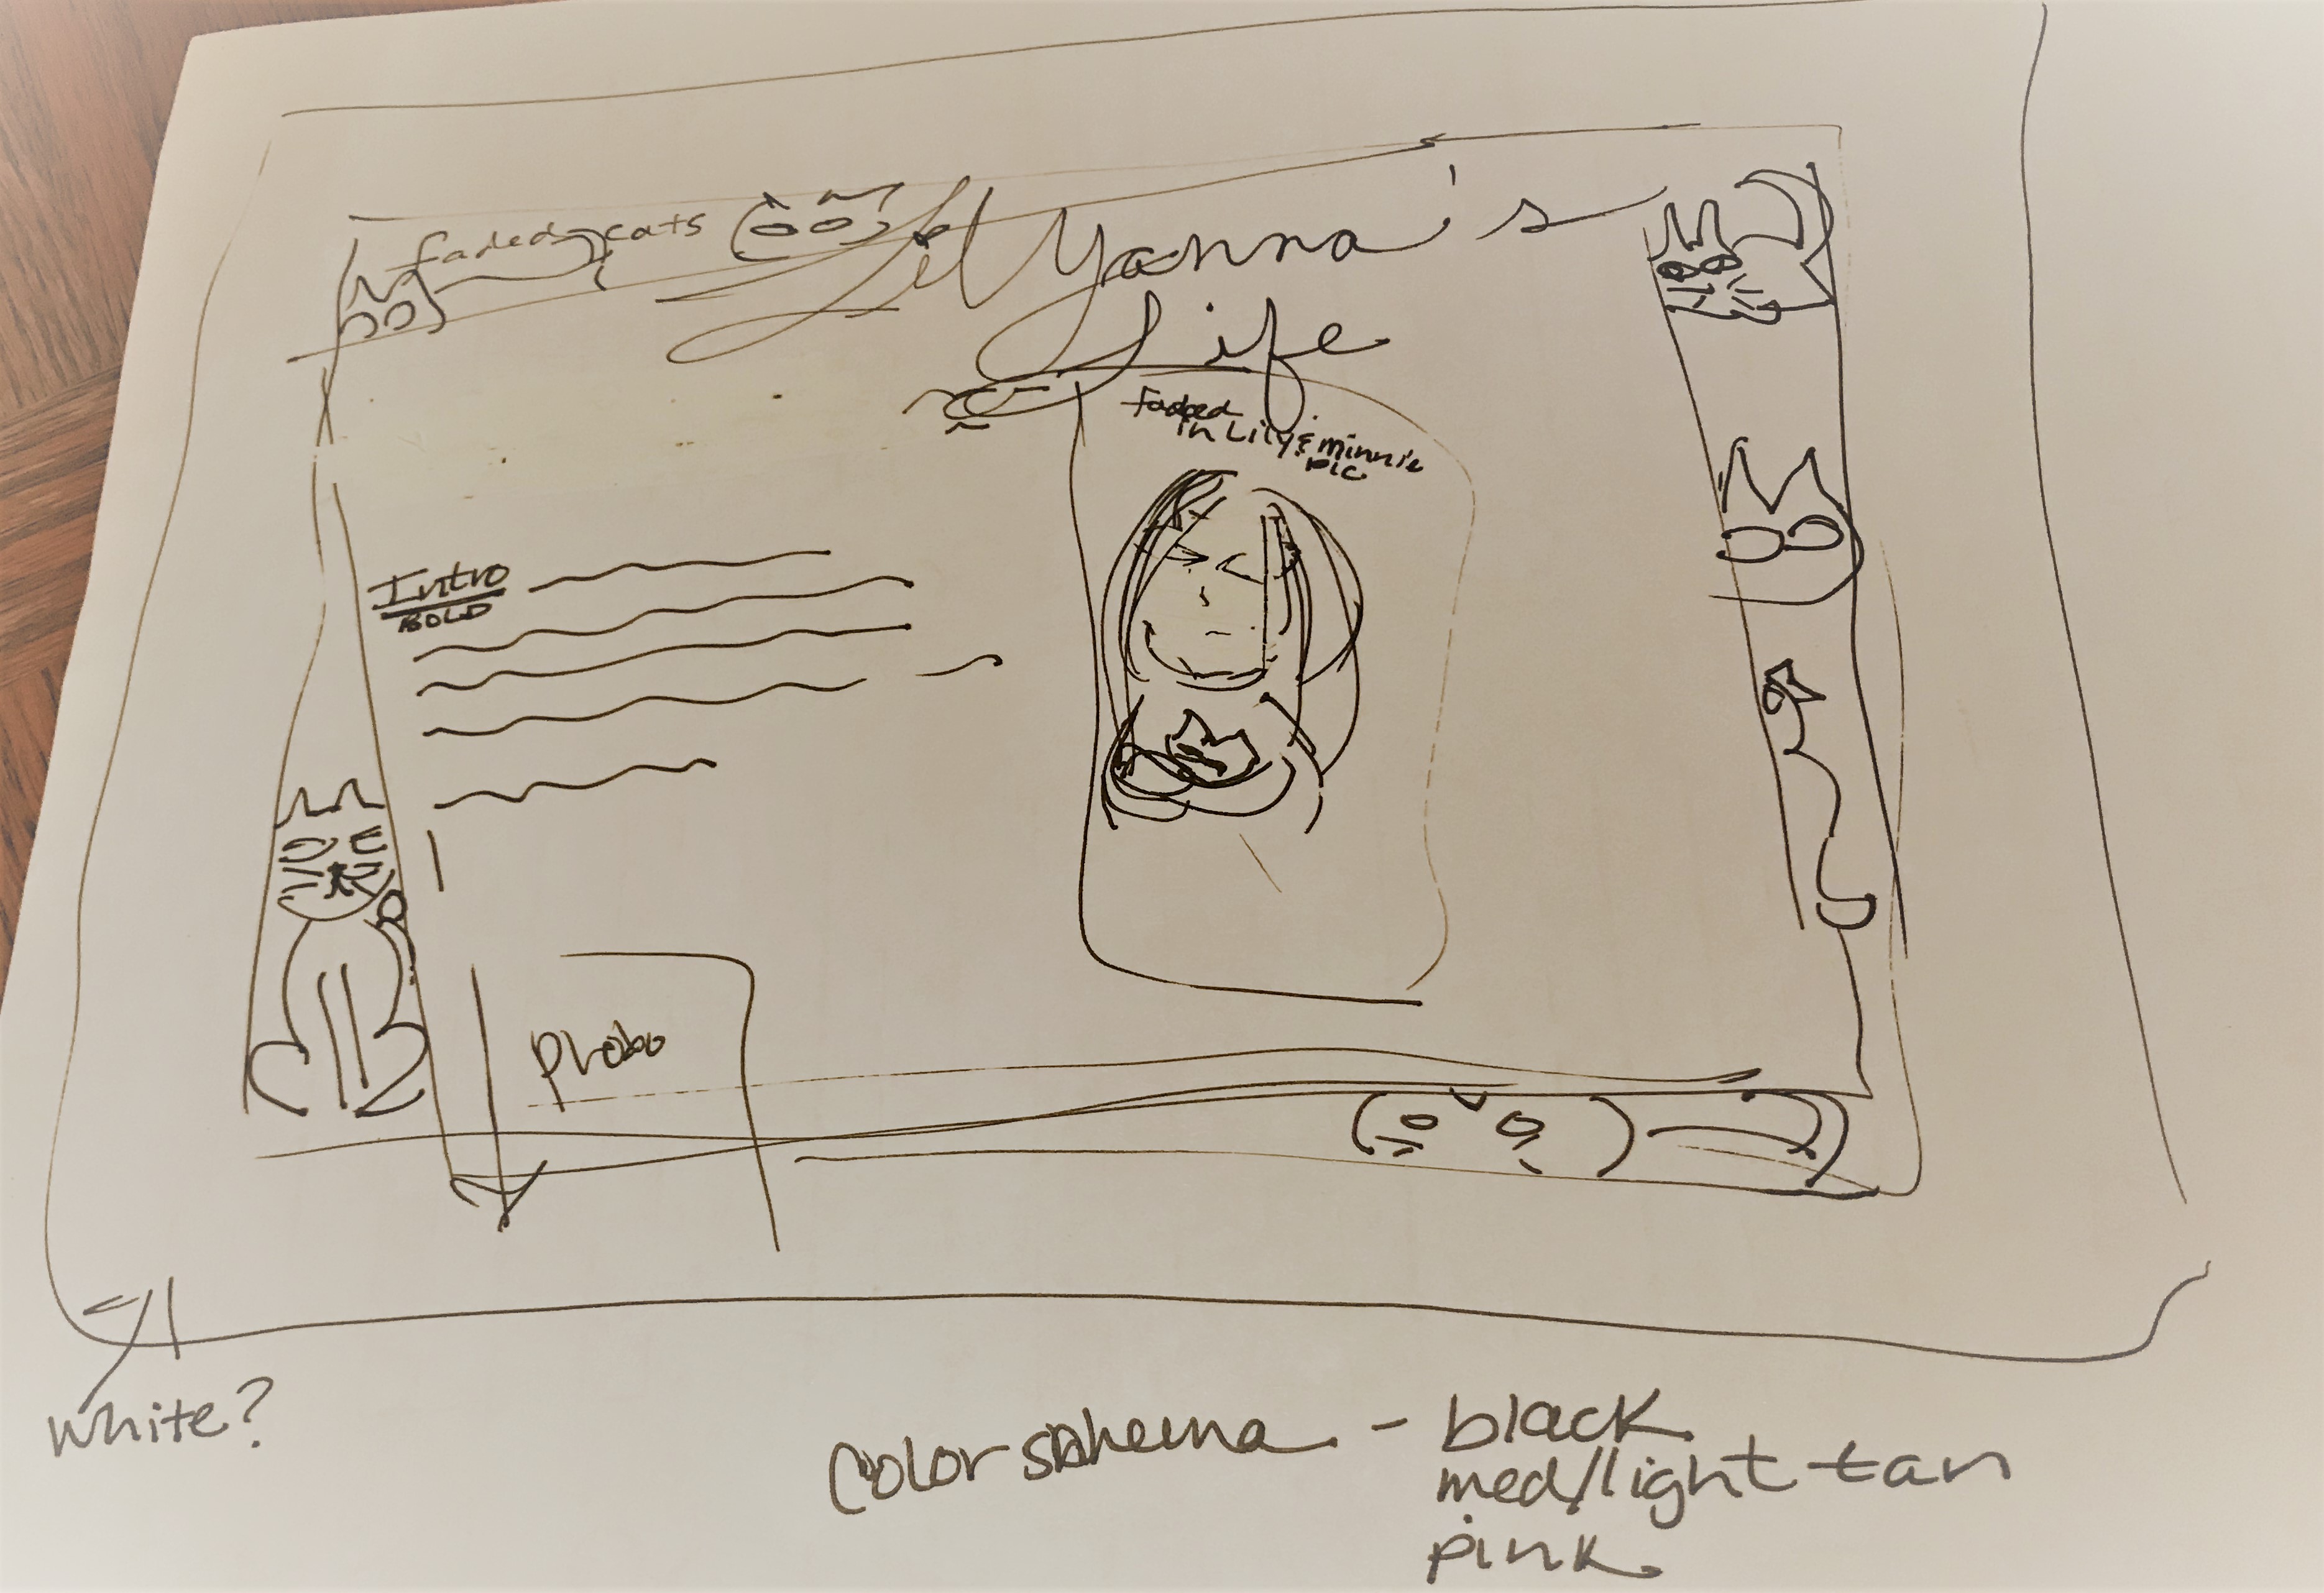 faded cats
Lil Yanna's
Life
faded
in Lily & minnie
pic
Intro
BOLD
photo
white?
Color schema - black
med/light tan
pink